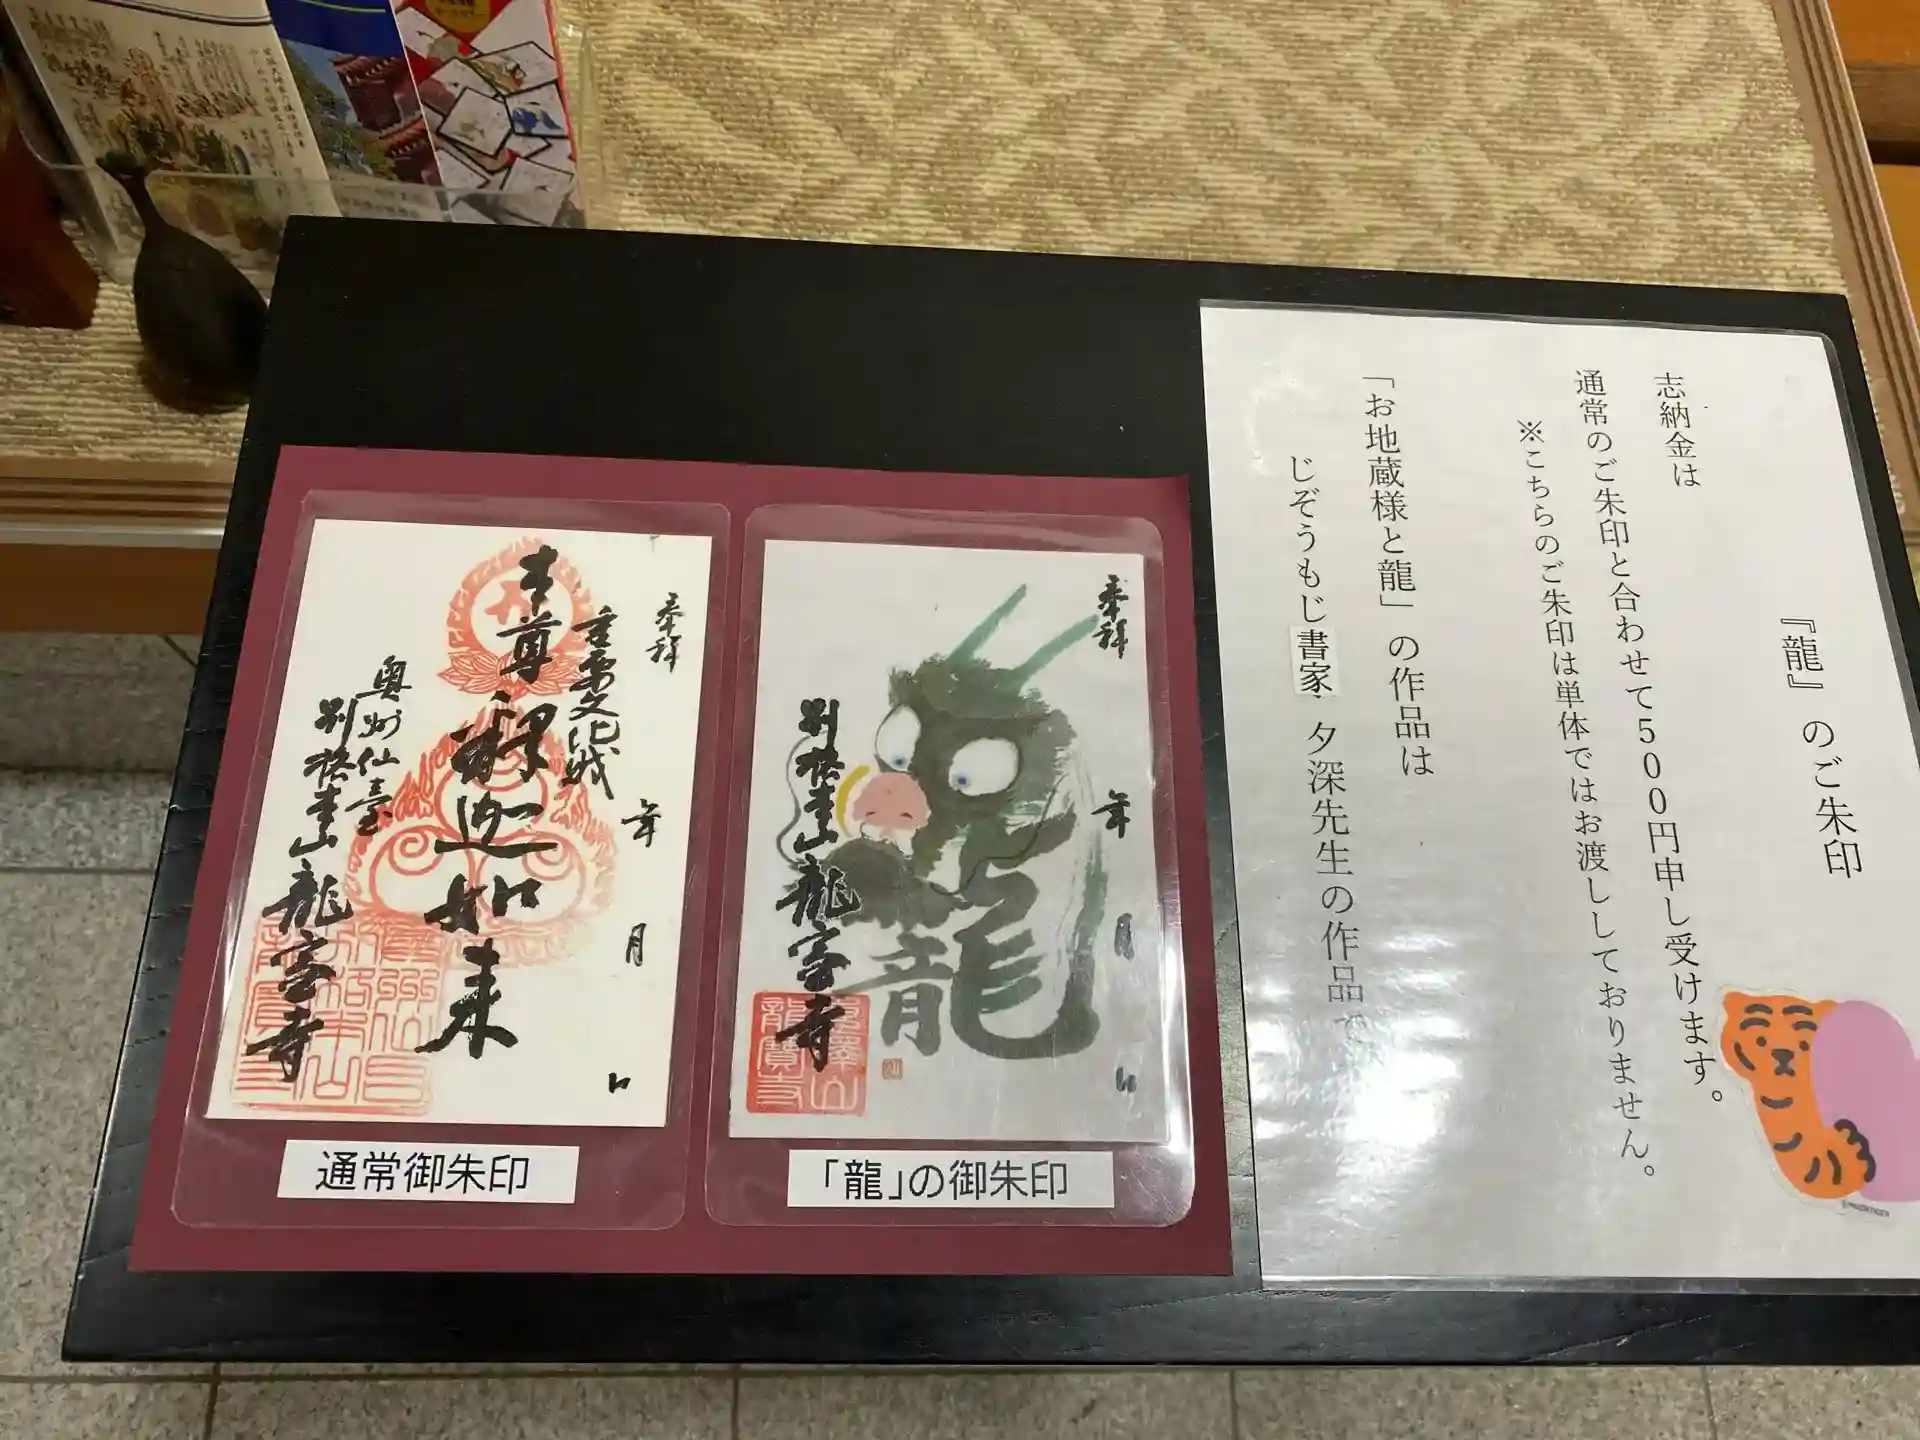 『龍』のご朱印
志納金は
通常のご朱印と合わせて500円申し受けます。
※こちらのご朱印は単体ではお渡ししておりません。
「お地蔵様と龍」の作品は
じぞうもじ書家 夕深先生の作品で
奉拝
重要文化財
本尊 釋迦如来
年 月 日
奥州仙臺
別格本山 龍宝寺
通常御朱印
奉拝
年 月 日
龍
別格本山 龍宝寺
龍寶寺
「龍」の御朱印